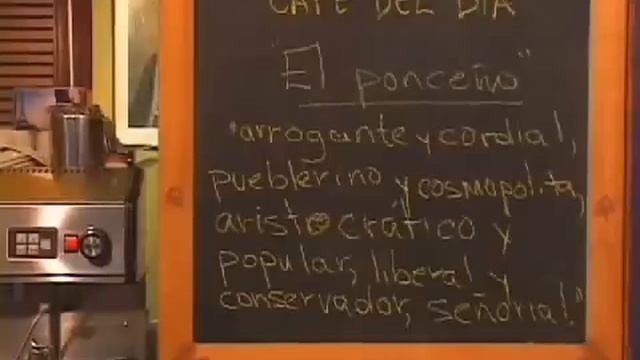 CAFÉ DEL DÍA
"El ponceño"
"arrogante y cordial,
pueblerino y cosmopolita,
aristocrático y
popular, liberal y
conservador, señorial."